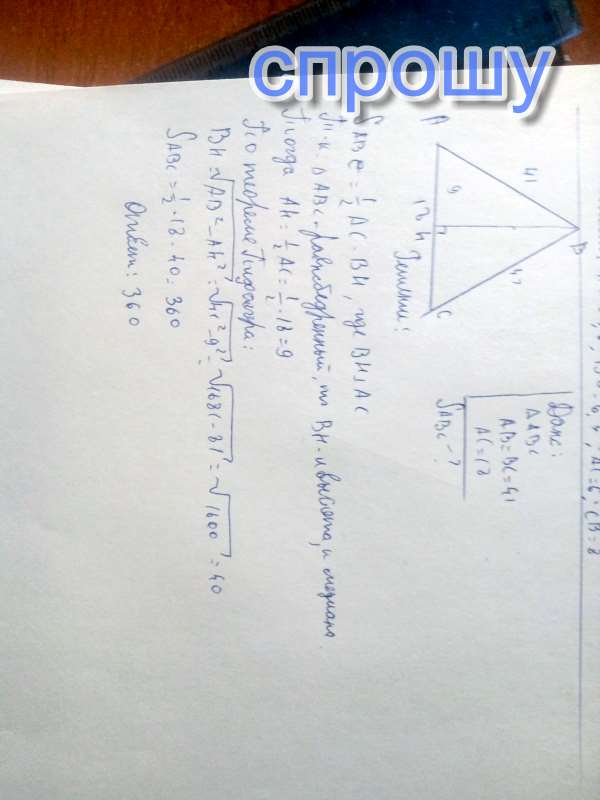 спрошу
AC=6; CB=8
Дано:
△ABC
AB=BC=41
AC=18
SABC-?
A
B
C
H
41
41
9
18
Решение:
SABC=1/2 AC·BH, где BH⊥AC
Т.к. △ABC-равнобедренный, то BH-и высота, и медиана
Тогда AH=1/2 AC=1/2·18=9
По теореме Пифагора:
BH=√AB²-AH²=√41²-9²=√1681-81=√1600=40
SABC=1/2·18·40=360
Ответ: 360